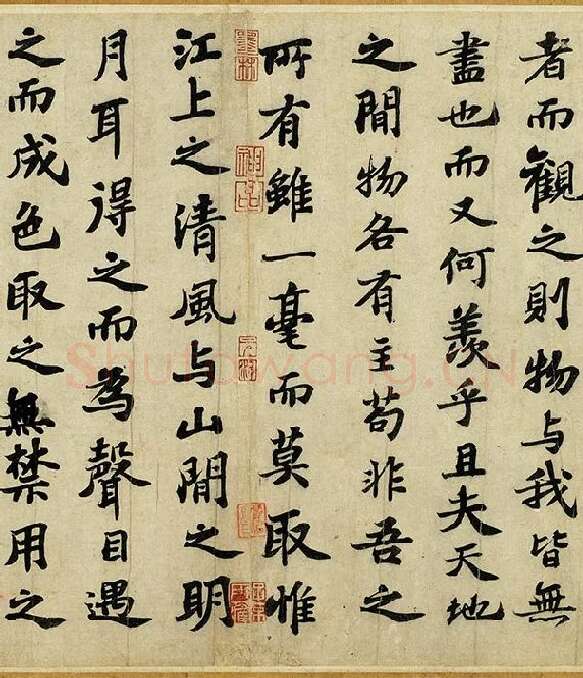 者而觀之則物与我皆無
盡也而又何羨乎且夫天地
之間物各有主苟非吾之
所有雖一毫而莫取惟
江上之清風与山間之明
月耳得之而為聲目遇
之而成色取之無禁用之
Shufawang.CN